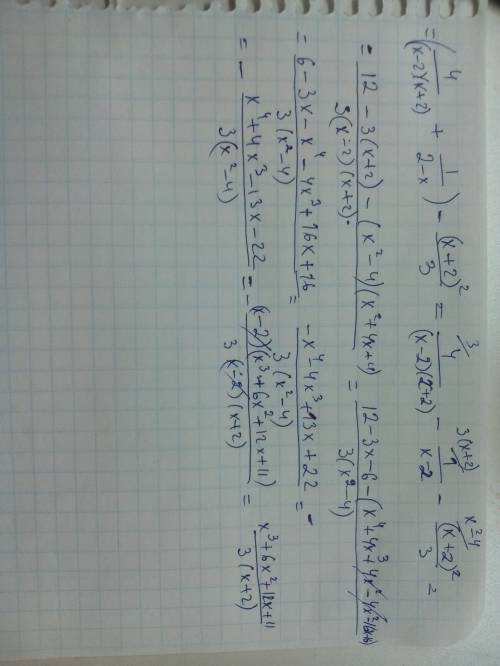 = (4/((x-2)(x+2)) + 1/(2-x)) - (x+2)²/3 = 3/ 4/((x-2)(2+2)) - 3(x+2)/ 1/(x-2) - x²-4/ (x+2)²/3 =
= (12 - 3(x+2) - (x²-4)(x²+4x+4))/(3(x-2)(x+2)) = (12-3x-6-(x⁴+4x³+4x²-4x²-16x-16))/(3(x²-4))
= (6-3x-x⁴-4x³+16x+16)/(3(x²-4)) = (-x⁴-4x³+13x+22)/(3(x²-4)) = -
= - (x⁴+4x³-13x-22)/(3(x²-4)) = - ((x-2)(x³+6x²+12x+11))/(3(x-2)(x+2)) = (x³+6x²+12x+11)/(3(x+2))